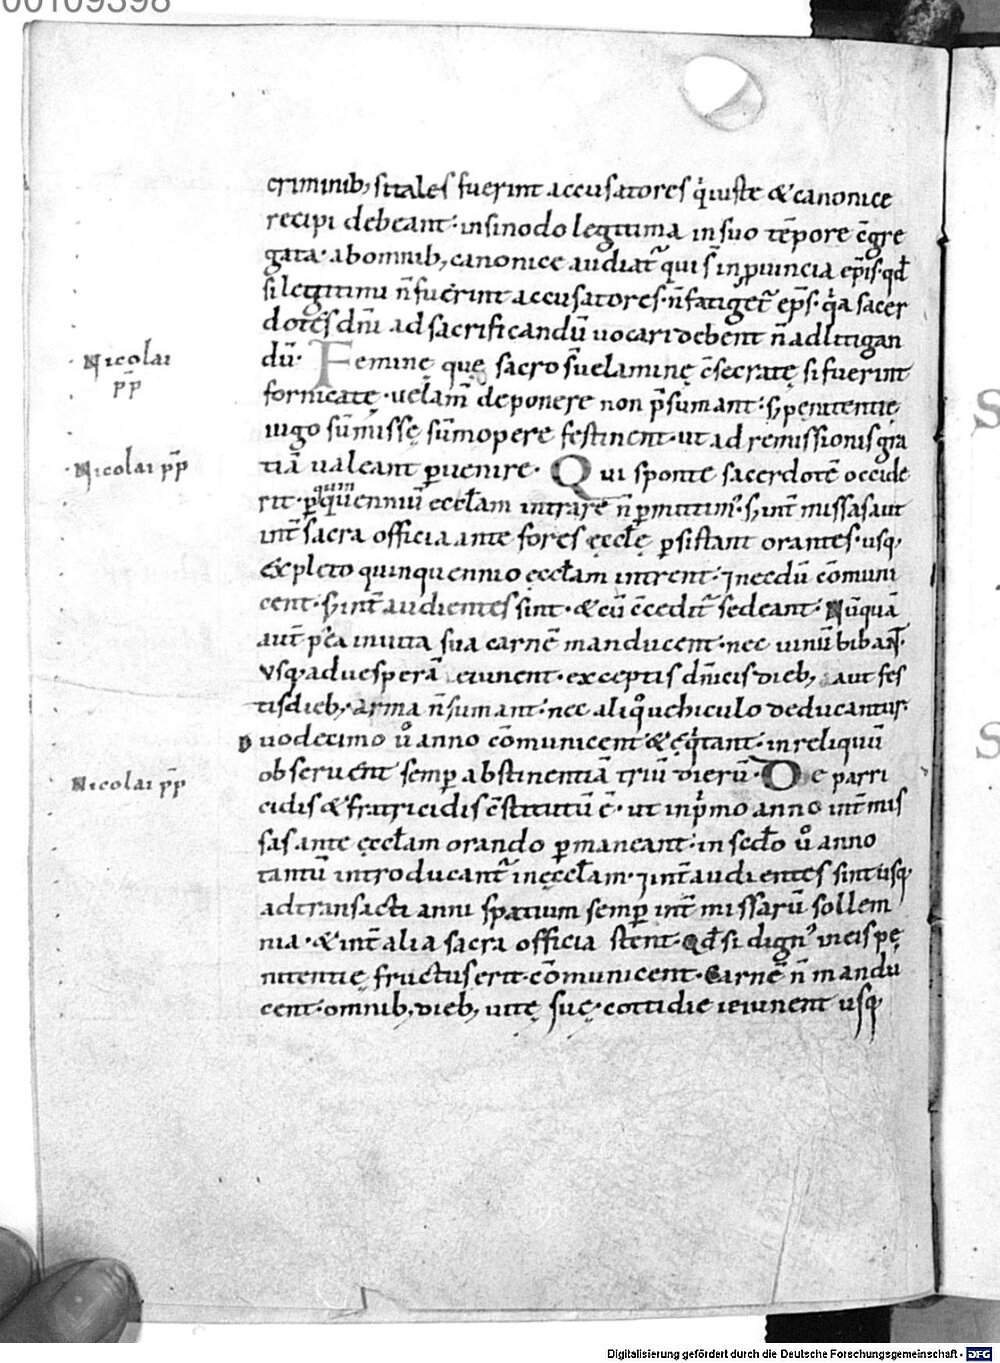 00109398
criminib; si tales fuerint accusatores q̇ iuste & canonice
recipi debeant · in sinodo legitima in suo tẽpore c̃gre
gata · ab omnib; canonice audiat᷑ qui s̃ in ꝓuincia ep̃is · qđ
si legitimi ñ fuerint accusatores · ñ fatiget᷑ ep̃s · q̇a sacer
dotes dñi ad sacrificandũ uocari debent ñ ad litigan
dũ · Feminę quę sacro s̃ uelaminę c̃secratę si fuerint
fornicatę · uelam̃ deponere non p̃sumant · s; penitentię
iugo sũmissę sũmopere festinent · ut ad remissionis gra
tiã ualeant ꝑuenire · Qui sponte sacerdotẽ occide
rit · ꝑ quinquenniũ eccl̃am intrare ñ ꝑmittitur · s; int̃ missas aut
int̃ sacra officia ante fores ęccl̃ę ꝑsistant orantes · usq;
Expleto quinquennio ęccl̃am intrent · ⁊ necdũ cõmuni
cent · s; int̃ audientes sint · & cũ c̃cedit᷑ sedeant · Nũquã
aut̃ p̃ea in uita sua carnẽ manducent · nec uinũ bibant ·
Vsq; ad uesperã ieiunent · exceptis dñicis dieb; aut fes
tis dieb; arma ñ sumant · nec aliqͦ uehiculo deducantur
Duodecimo ů anno cõmunicent & ęq̇tant · in reliquũ
obseruent semꝑ abstinentiã triũ dierũ · De parri
cidis & fratricidis c̃stitutũ ẽ · ut in ṗmo anno int̃ mis
sas ante ęccl̃am orando ꝑmaneant · in scd̃o ů anno
tantũ introducant᷑ in ęccl̃am · ⁊ int̃ audientes sint usq;
ad transacti anni spatium semꝑ int̃ missarũ sollem
nia · & int̃ alia sacra officia stent · Qđ si dign᷒ uicis pę
nitentię fructus erit · cõmunicent · Carnẽ ñ mandu
cent · omnib; dieb; uitę suę · cottidie ieiunent usq;
Nicolai
pp̃
Nicolai pp̃
Nicolai pp̃
Digitalisierung gefördert durch die Deutsche Forschungsgemeinschaft - DFG